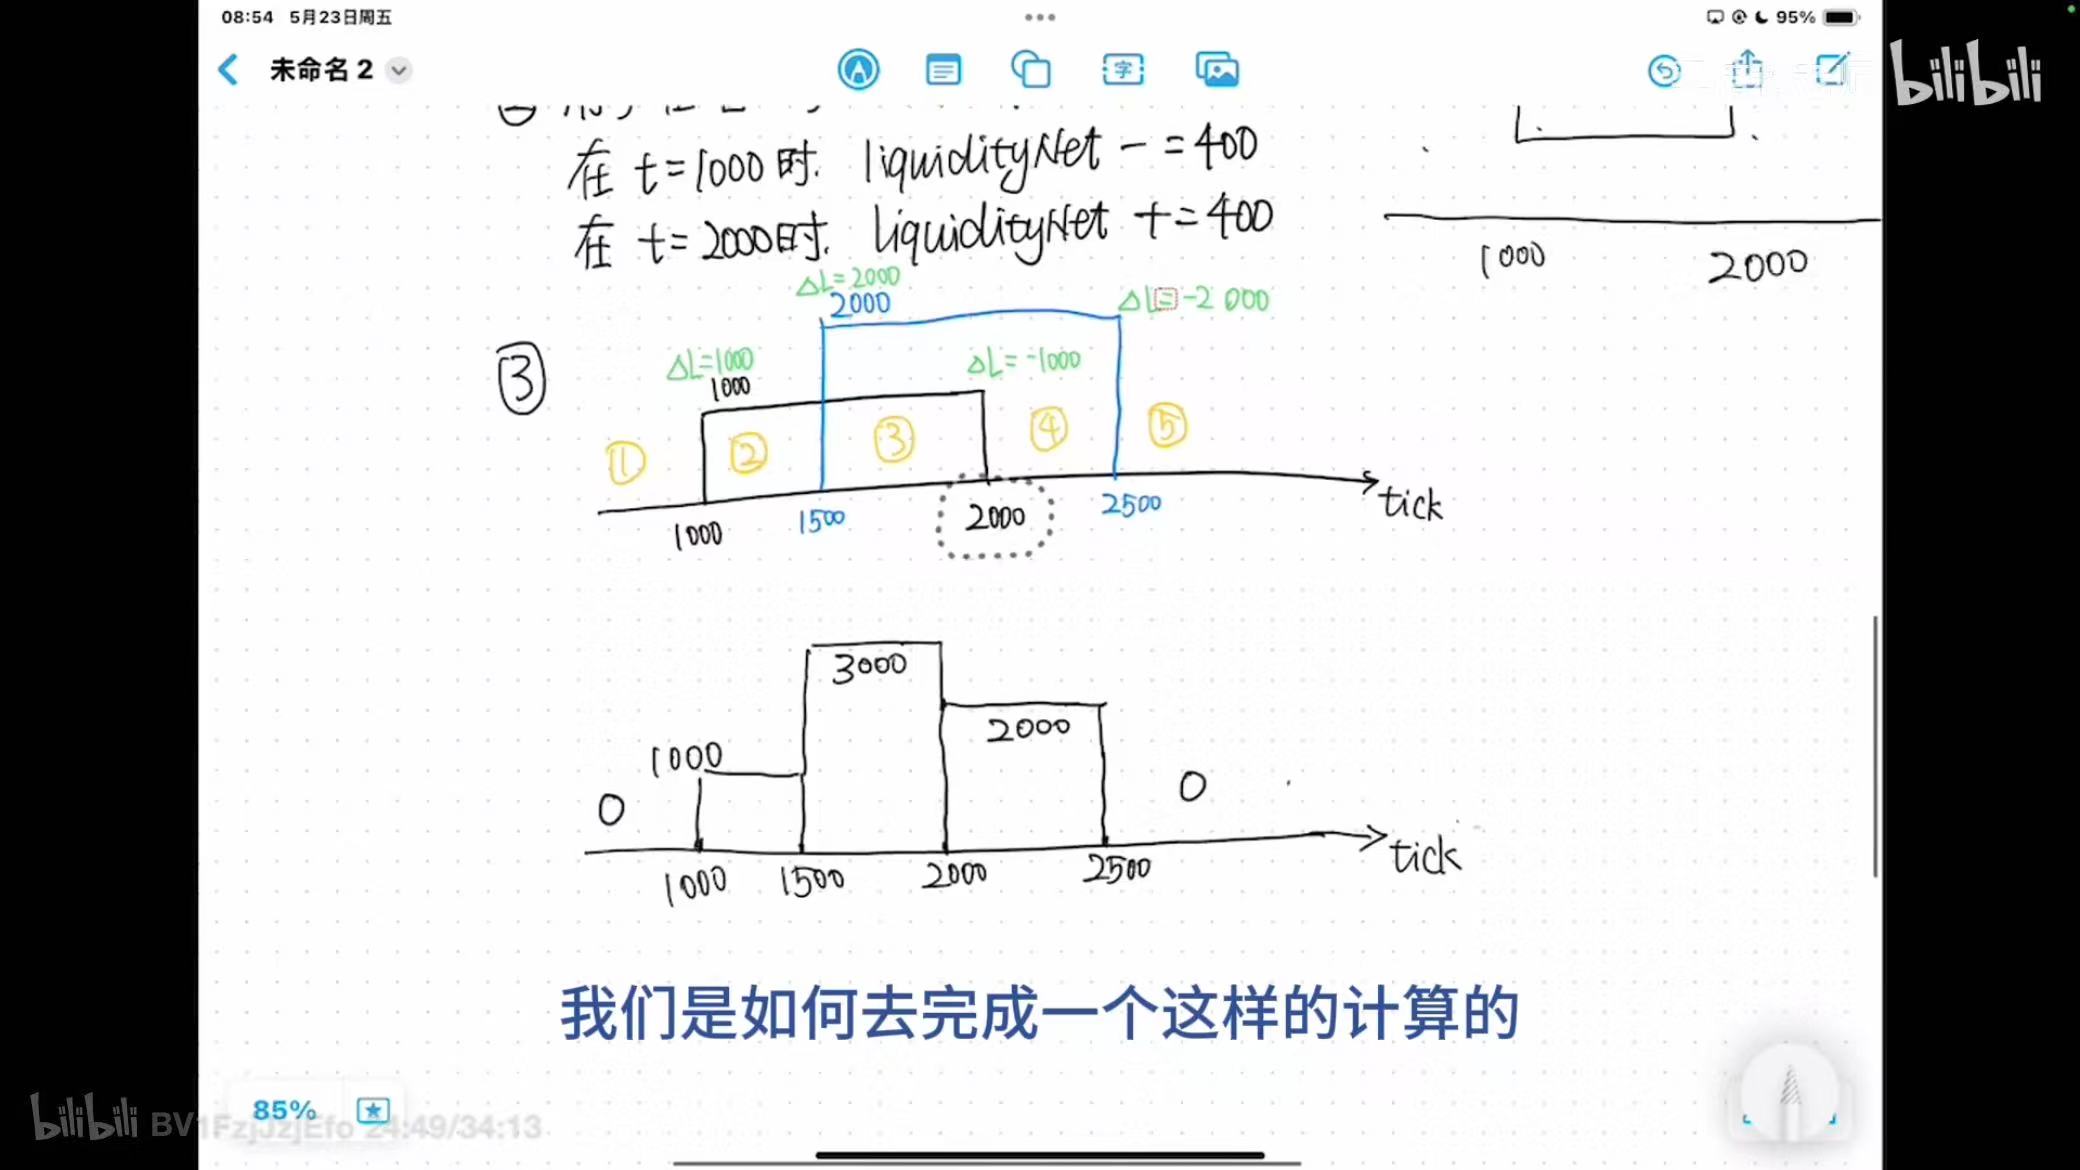 08:54 5月23日周五
95%
未命名 2
字
bilibili
在 t=1000 时. liquidityNet -=400
在 t=2000时. liquidityNet +=400
1000 2000
③
ΔL=2000
2000
ΔL=-2000
ΔL=1000
1000
ΔL=-1000
① ② ③ ④ ⑤
1000 1500 2000 2500 tick
3000
2000
1000
0 0
1000 1500 2000 2500 tick
我们是如何去完成一个这样的计算的
85%
bilibili BV1FzjJzjEfo 24:49/34:13